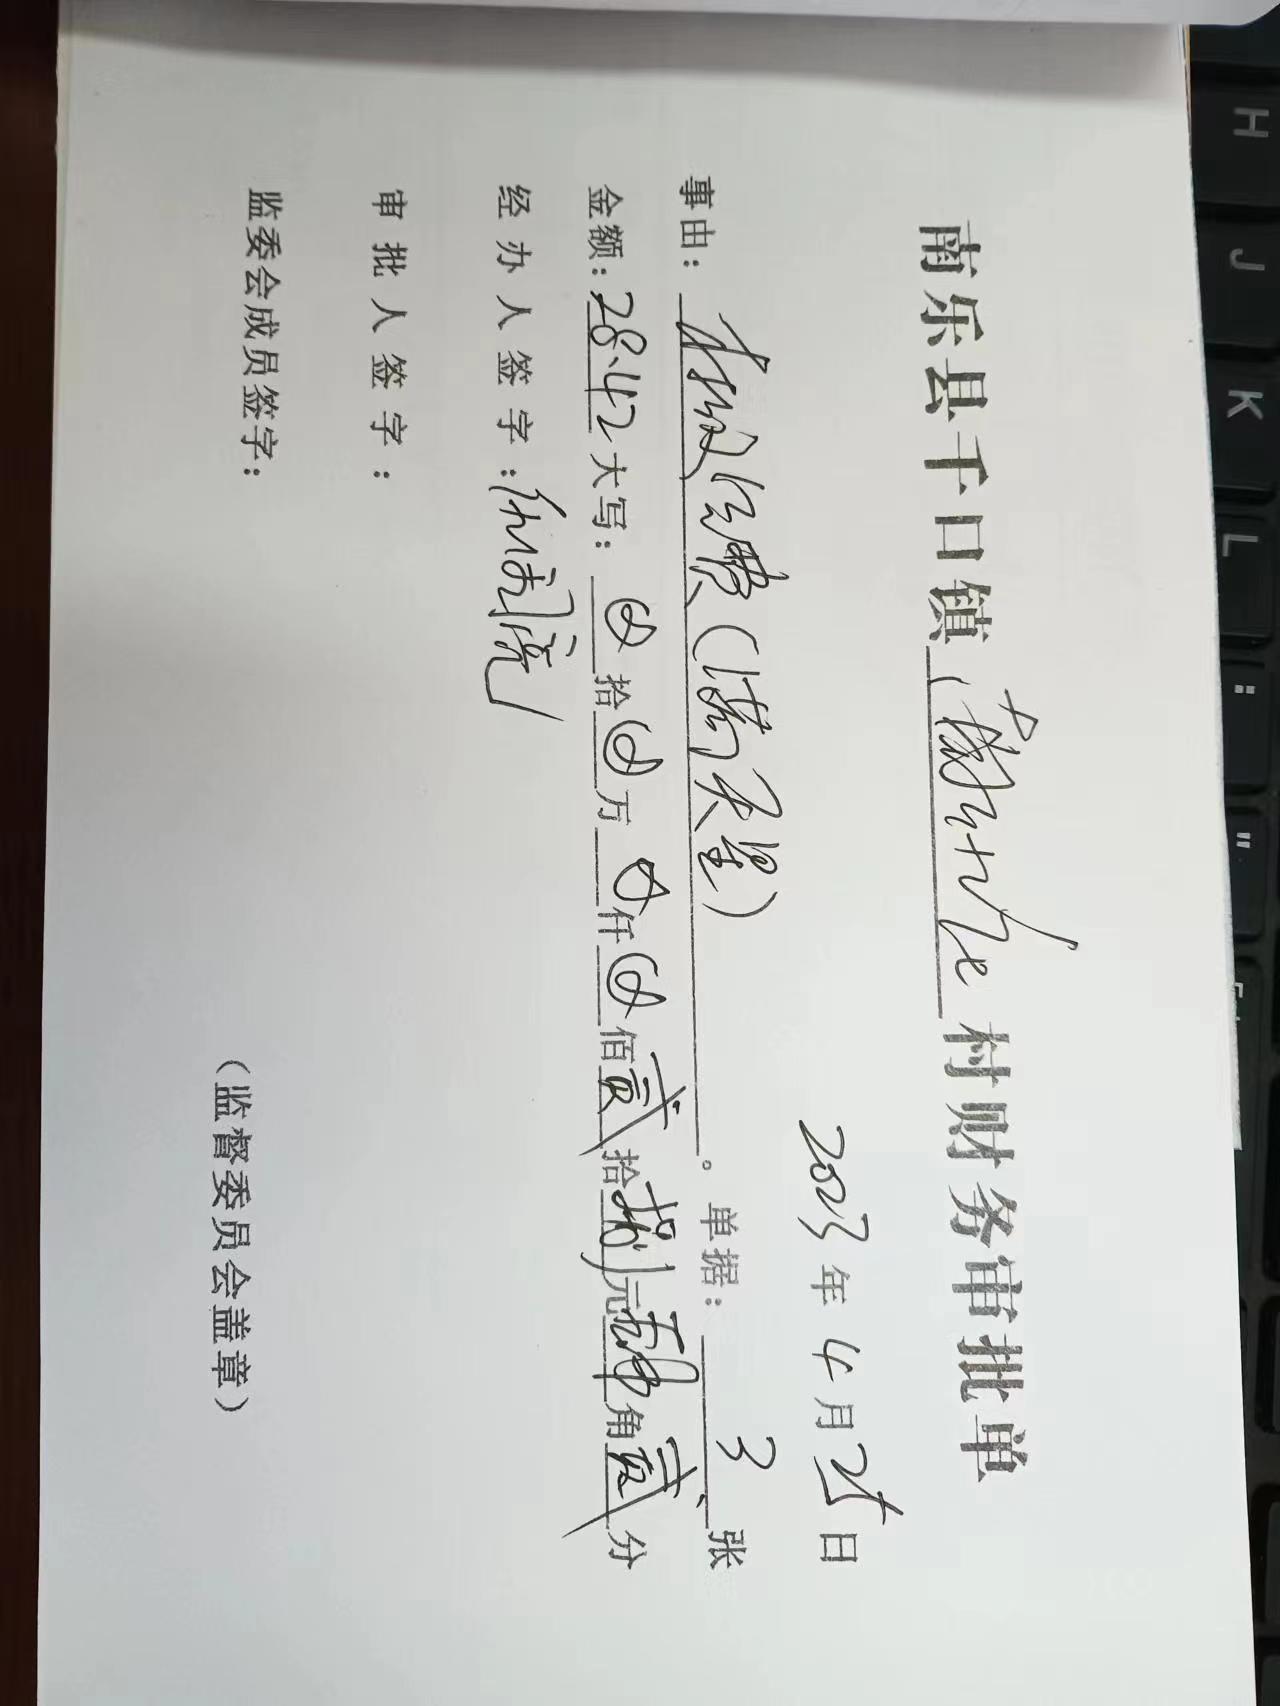 南乐县千口镇 村财务审批单
2023年4月25日
事由：费（满天星）。单据：3张
金额：28.42大写：拾万仟佰贰拾捌元肆角贰分
经办人签字：
审批人签字：
监委会成员签字：
（监督委员会盖章）
H
J
K
L